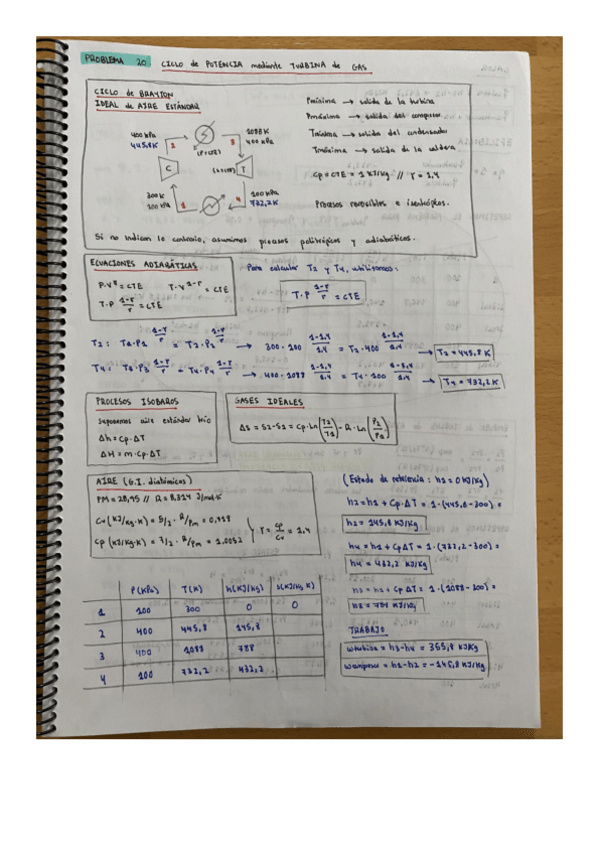 PROBLEMA 20 CICLO de POTENCIA mediante TURBINA de GAS
CICLO de BRAYTON
IDEAL de AIRE ESTÁNDAR
400 kPa
445,8K
2
3
1088K
400 kPa
(P=CTE)
C
T
300K
100 kPa
1
4
100 kPa
732,2K
Pmínima → salida de la turbina
Pmáxima → salida del compresor
Tmínima → salida del condensador
Tmáxima → salida de la caldera
Cp = CTE = 1 KJ/Kg // γ = 1,4
Procesos reversibles e isentrópicos.
Si no indican lo contrario, asumimos procesos politrópicos y adiabáticos.
ECUACIONES ADIABÁTICAS
P·V^γ = CTE T·V^1-γ = CTE
T·P^(1-γ)/γ = CTE
Para calcular T2 y T4, utilizamos:
T·P^(1-γ)/γ = CTE
T2: T1·P1^(1-γ)/γ = T2·P2^(1-γ)/γ → 300·100^(1-1,4)/1,4 = T2·400^(1-1,4)/1,4 → T2 = 445,8 K
T4: T3·P3^(1-γ)/γ = T4·P4^(1-γ)/γ → 400·1088^(1-1,4)/1,4 = T4·100^(1-1,4)/1,4 → T4 = 732,2 K
PROCESOS ISOBAROS
Suponemos aire estándar frío
Δh = Cp·ΔT
ΔH = m·Cp·ΔT
GASES IDEALES
ΔS = S2-S1 = Cp·Ln(T2/T1) - R·Ln(P2/P1)
AIRE (G.I. diatómicos)
PM = 28,95 // R = 8,314 J/mol·K
Cv (KJ/Kg·K) = 5/2 · R/PM = 0,718
Cp (KJ/Kg·K) = 7/2 · R/PM = 1,0052
γ = Cp/Cv = 1,4
(Estado de referencia: h1 = 0 KJ/Kg)
h2 = h1 + Cp·ΔT = 1·(445,8-300) =
h2 = 145,8 KJ/Kg
h4 = h1 + CpΔT = 1·(732,2-300) =
h4 = 432,2 KJ/Kg
h3 = h1 + Cp ΔT = 1·(1088-300) =
h3 = 788 KJ/Kg
TRABAJO
wturbina = h3-h4 = 355,8 KJ/Kg
wcompresor = h1-h2 = -145,8 KJ/Kg
P(KPa) T(K) h(KJ/Kg) s(KJ/Kg K)
1 100 300 0 0
2 400 445,8 145,8
3 400 1088 788
4 100 732,2 432,2